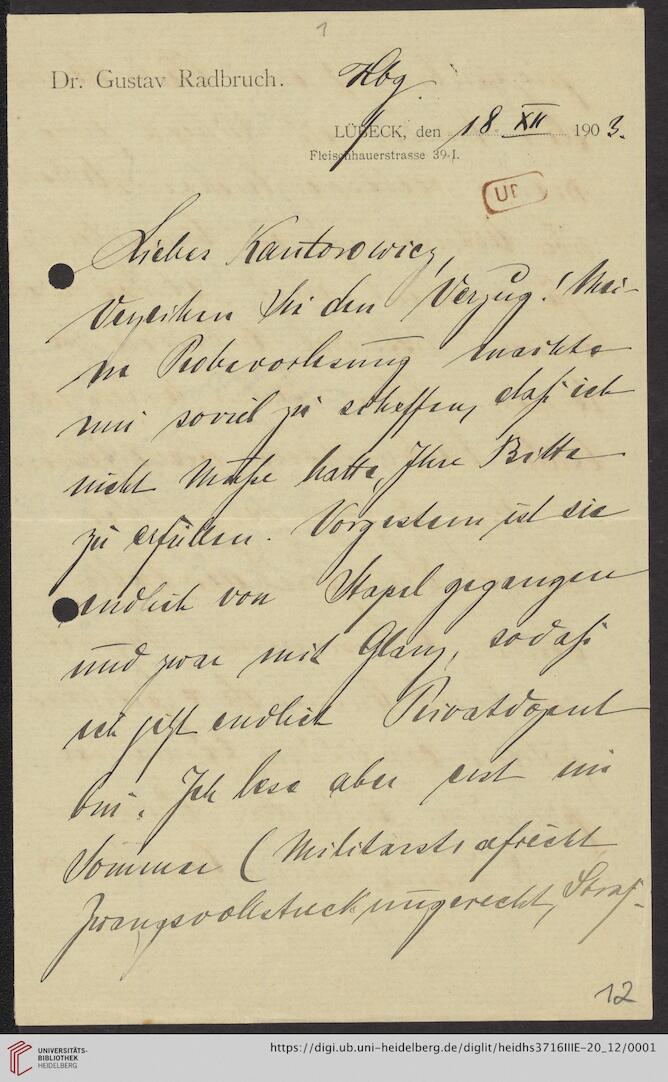 1
Dr. Gustav Radbruch.
Hbg
LÜBECK, den 18 XII 1903.
Fleischhauerstrasse 39.I.
Lieber Kantorowicz,
Verzeihen Sie den Verzug! Mei-
ne Probevorlesung machte
mir soviel zu schaffen, daß ich
nicht Muße hatte, Ihre Bitte
zu erfüllen. Vorgestern ist sie
endlich von Stapel gegangen
und zwar mit Glanz, sodaß
ich jetzt endlich Privatdozent
bin. Ich lese aber erst im
Sommer (Militärstrafrecht
Zwangsvollstreckungsrecht, Straf-
12
UNIVERSITÄTS-
BIBLIOTHEK
HEIDELBERG
https://digi.ub.uni-heidelberg.de/diglit/heidhs3716IIIE-20_12/0001